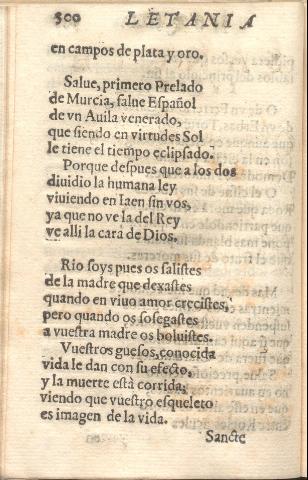 500 LETANIA
en campos de plata y oro.
Salue, primero Prelado
de Murcia, salue Español
de vn Auila venerado,
que siendo en virtudes Sol
le tiene el tiempo eclipsado.
Porque despues que a los dos
diuidio la humana ley
viuiendo en Iaen sin vos,
ya que no ve la del Rey
ve alli la cara de Dios.
Rio soys pues os salistes
de la madre que dexastes
quando en viuo amor crecistes,
pero quando os sosegastes
a vuestra madre os boluistes.
Vuestros guesos, conocida
vida le dan con su efecto,
y la muerte està corrida,
viendo que vuestro esqueleto
es imagen de la vida.
Sancte